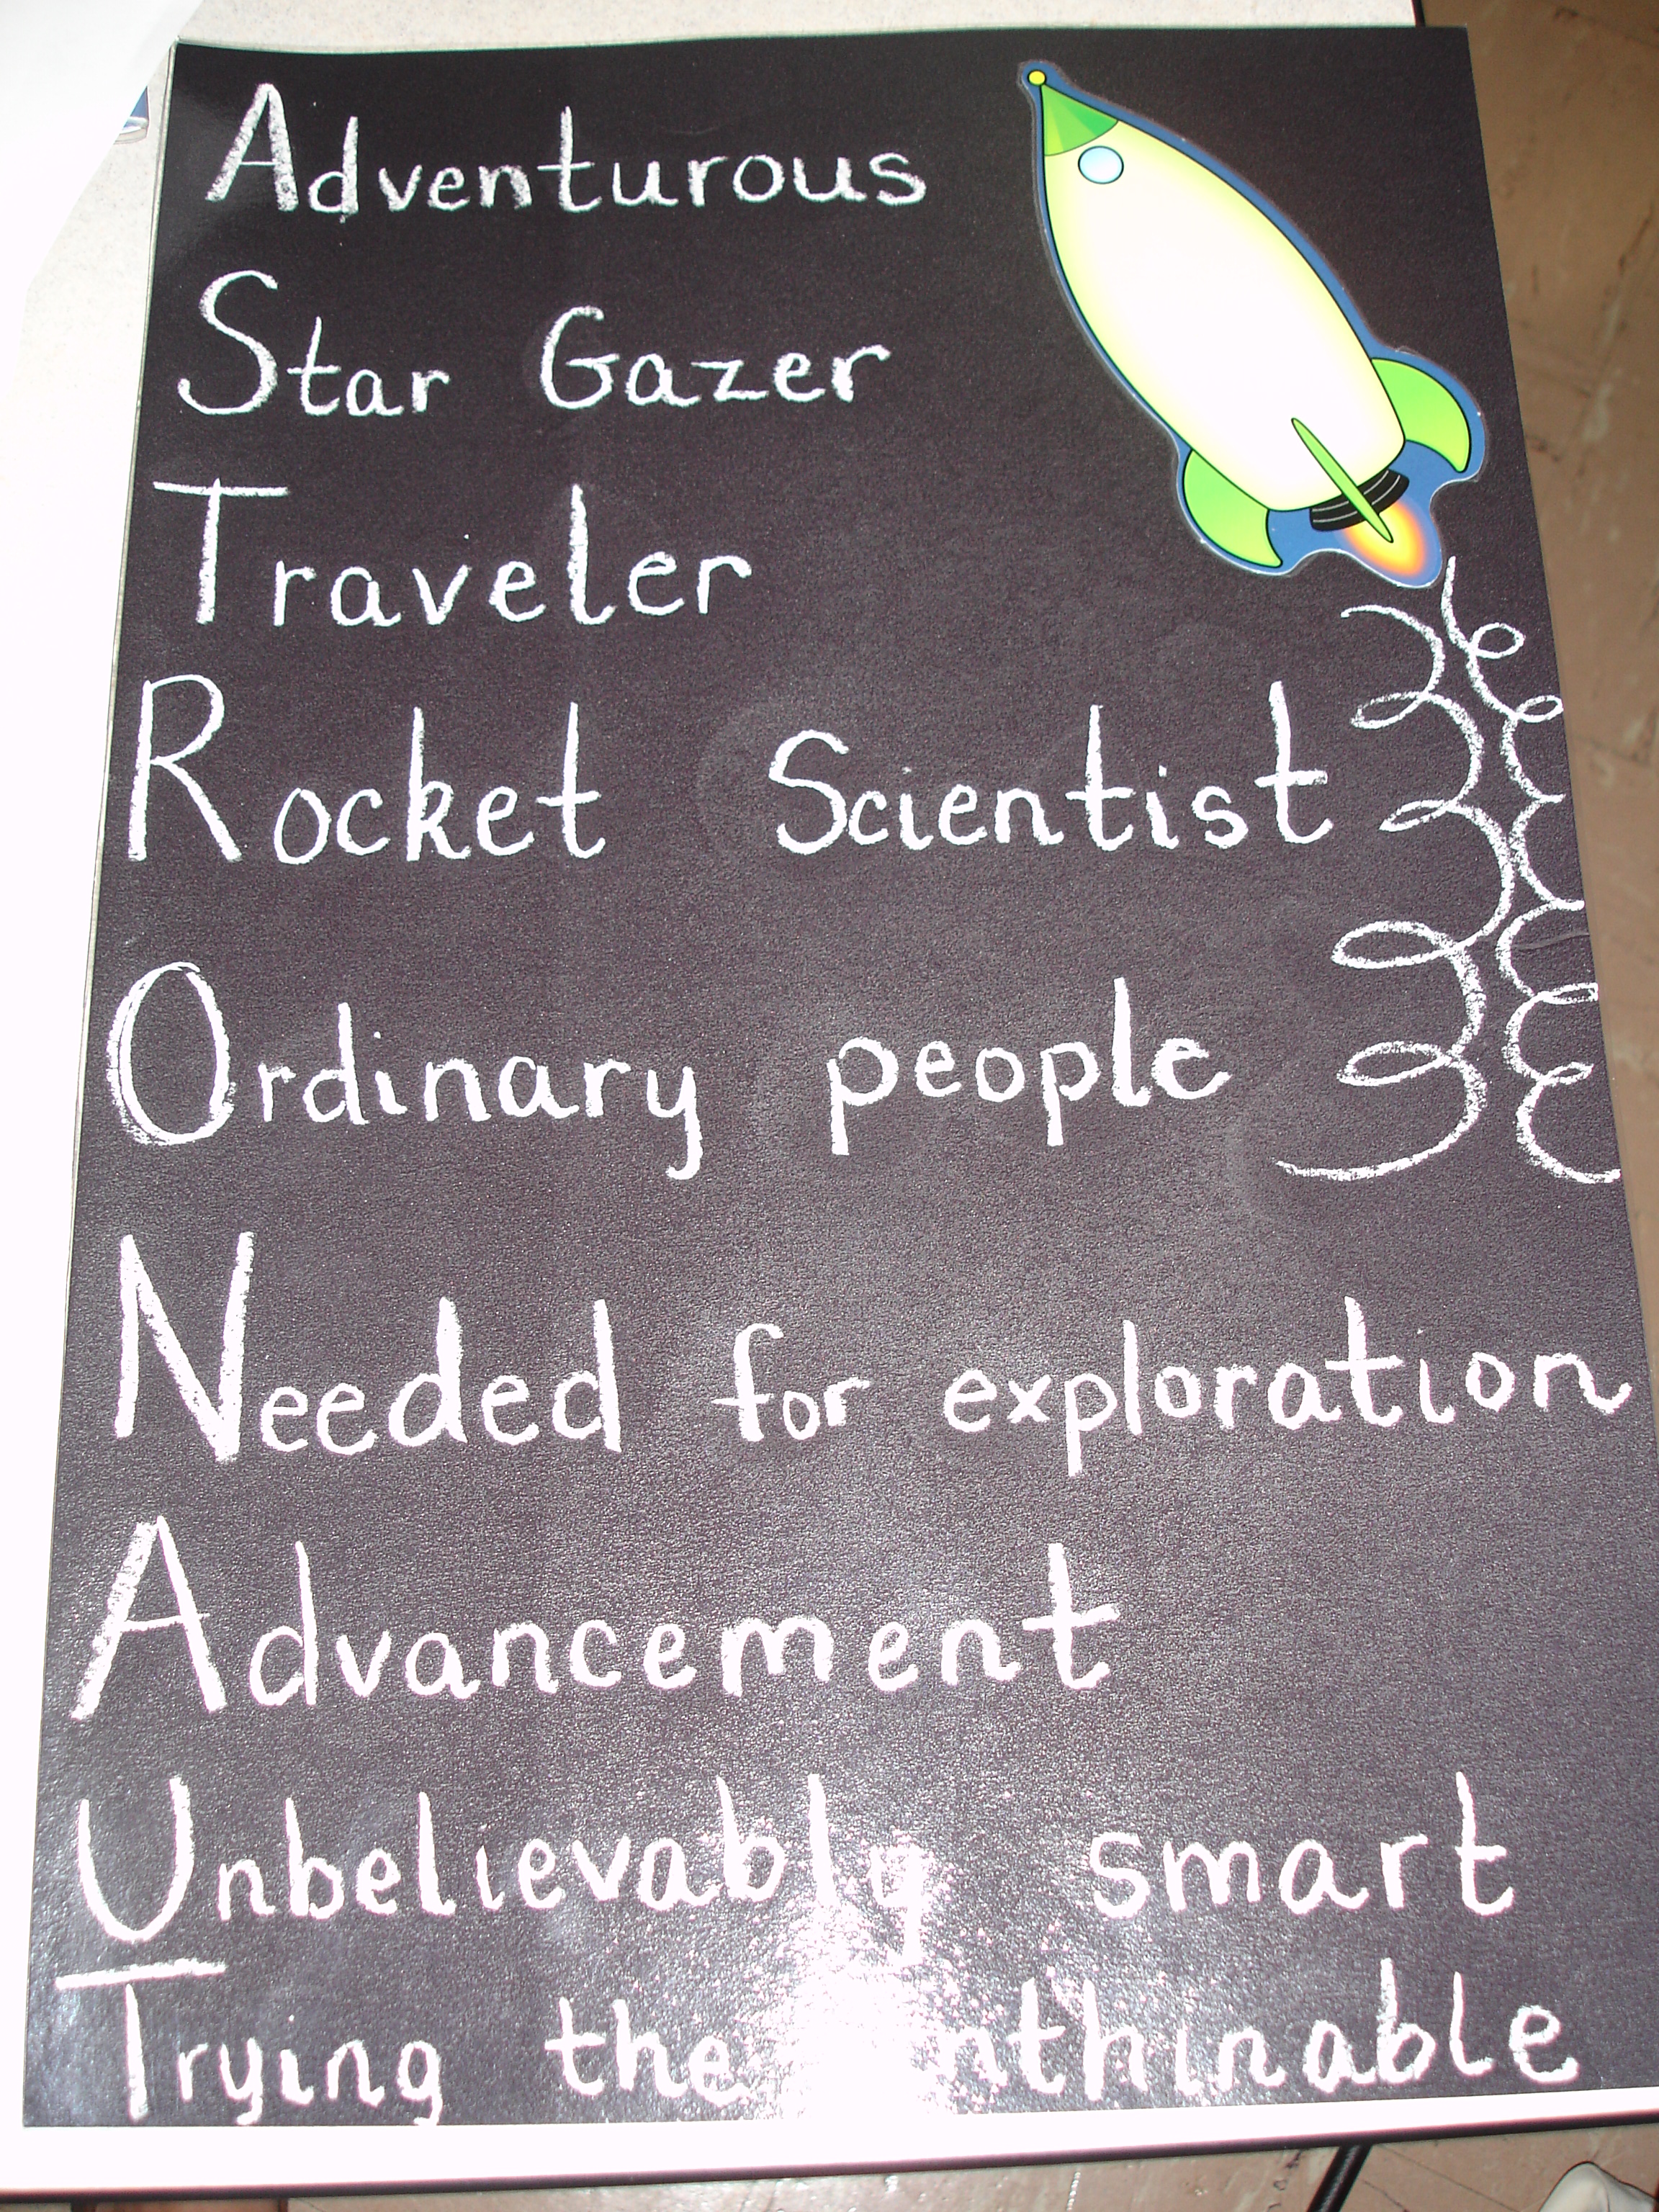 Adventurous
Star Gazer
Traveler
Rocket Scientist
Ordinary people
Needed for exploration
Advancement
Unbelievably smart
Trying the